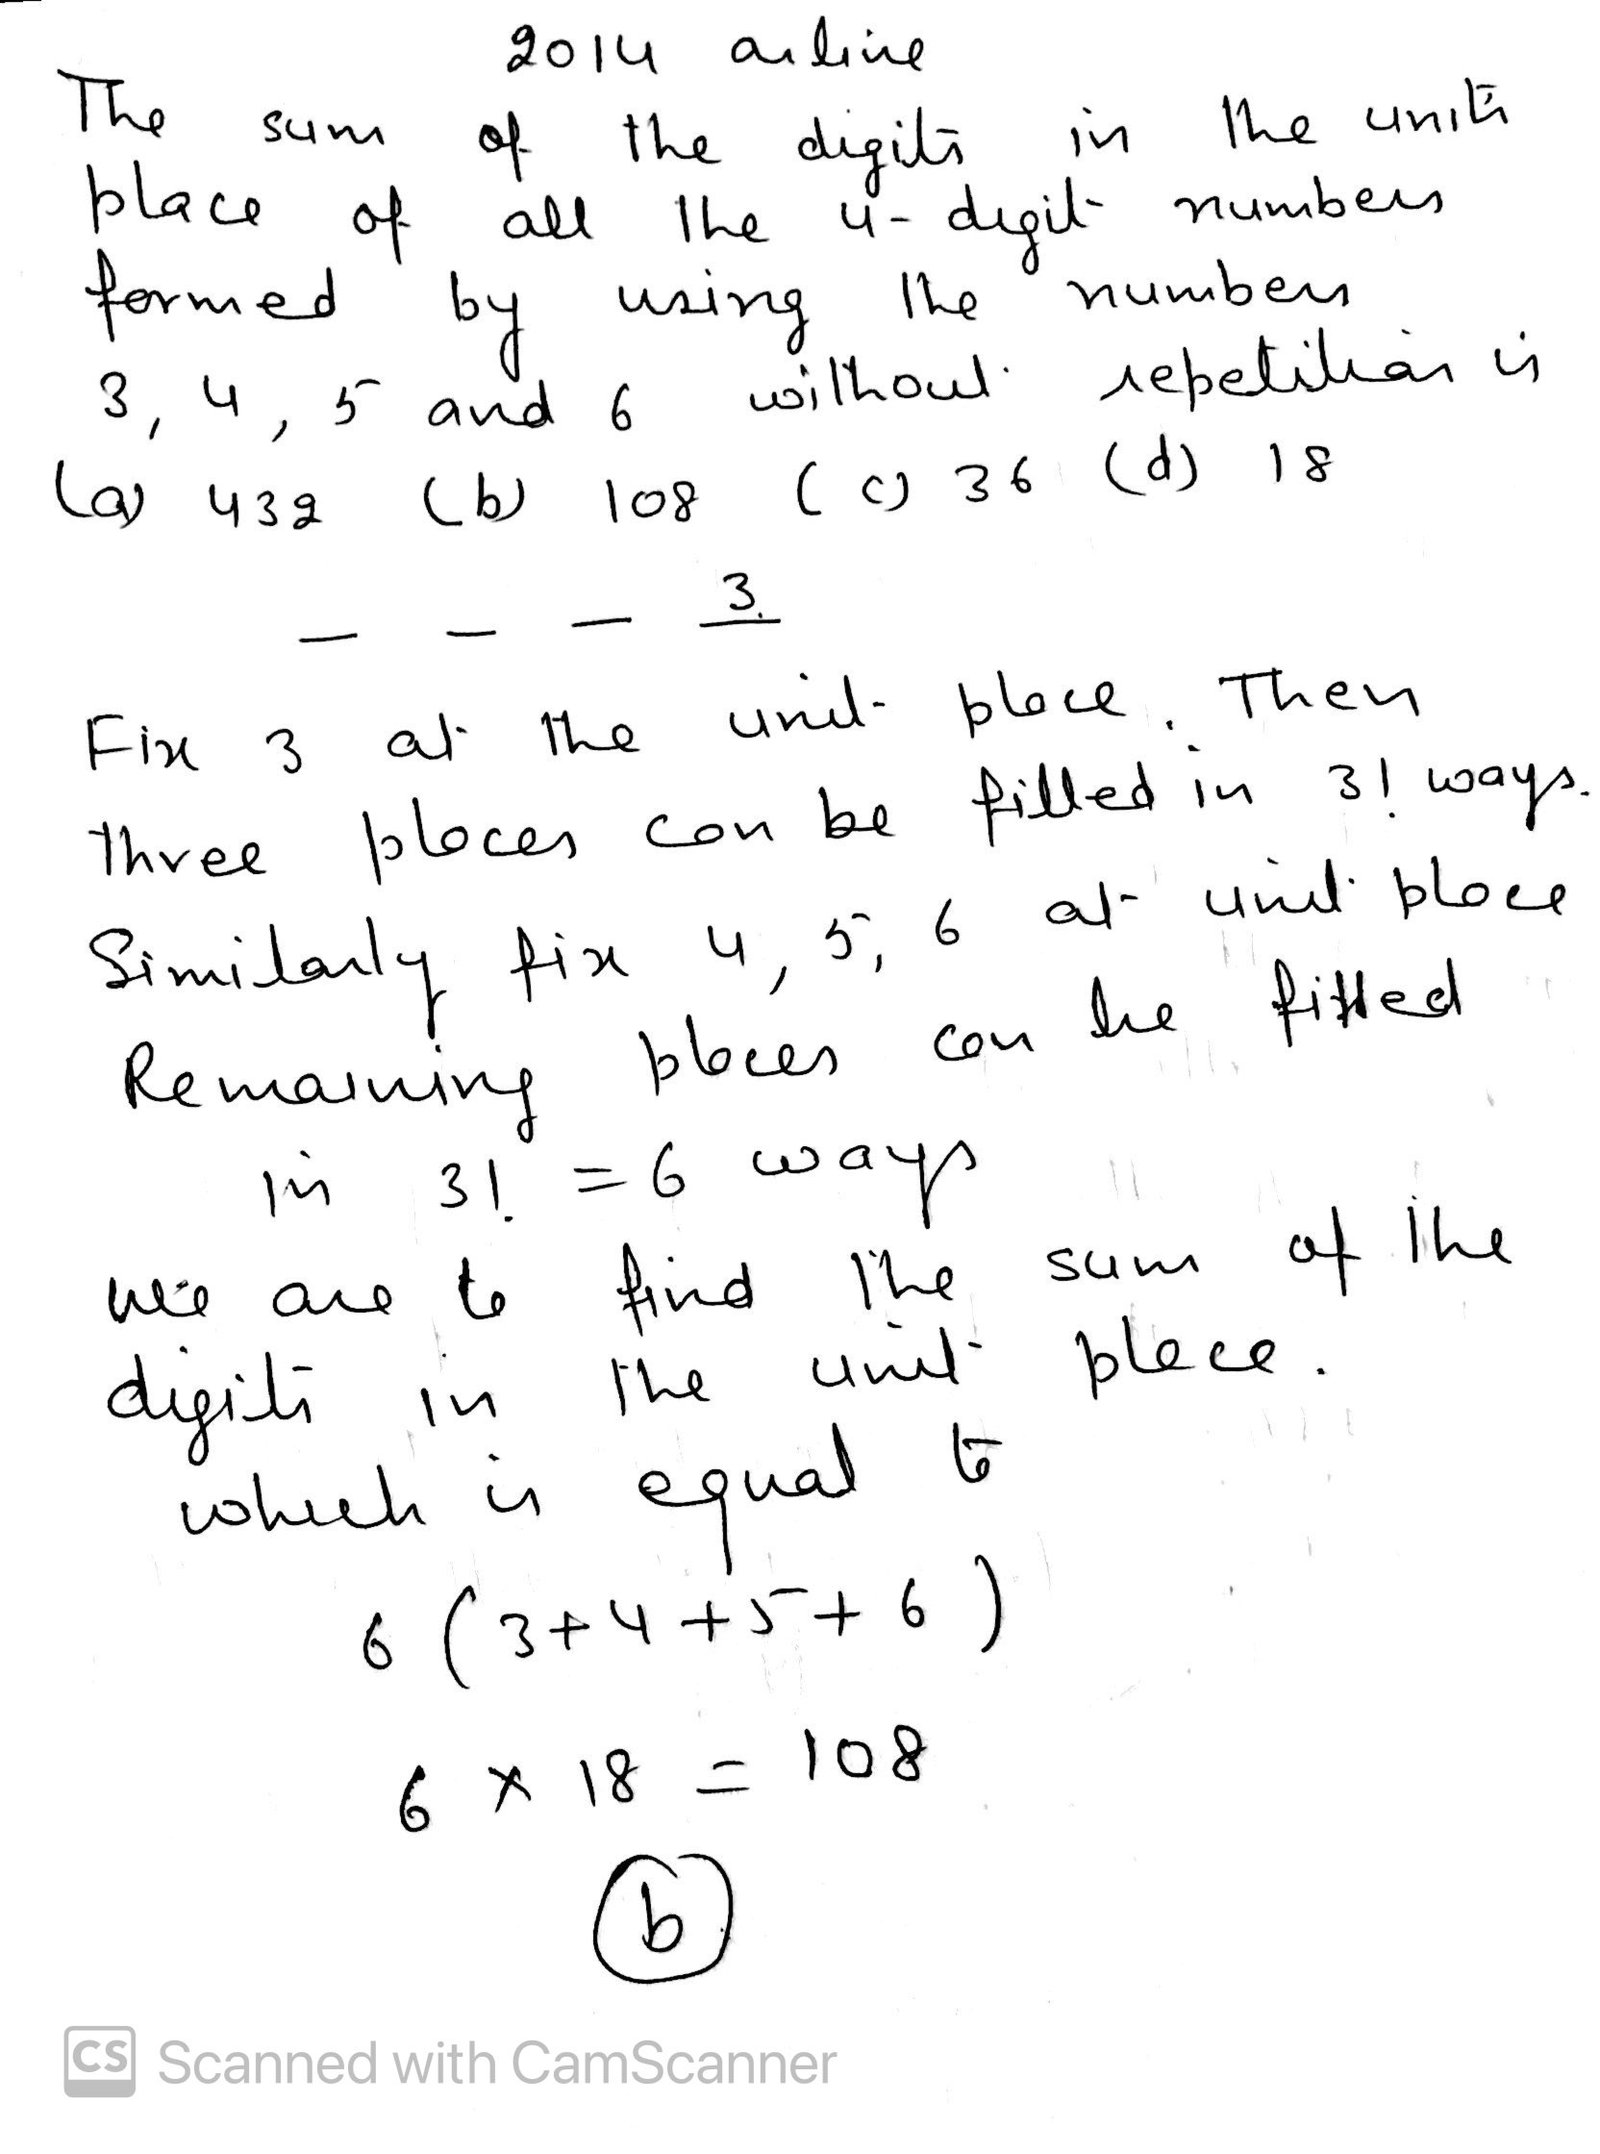 2014 online
The sum of the digits in the units
place of all the 4-digit numbers
formed by using the numbers
3, 4, 5 and 6 without repetition is
(a) 432 (b) 108 (c) 36 (d) 18
_ _ _ 3
Fix 3 at the unit place. Then
three places can be filled in 3! ways.
Similarly fix 4, 5, 6 at unit place
Remaining places can be filled
in 3! = 6 ways
We are to find the sum of the
digits in the unit place.
which is equal to
6 (3+4+5+6)
6 × 18 = 108
b
CS Scanned with CamScanner